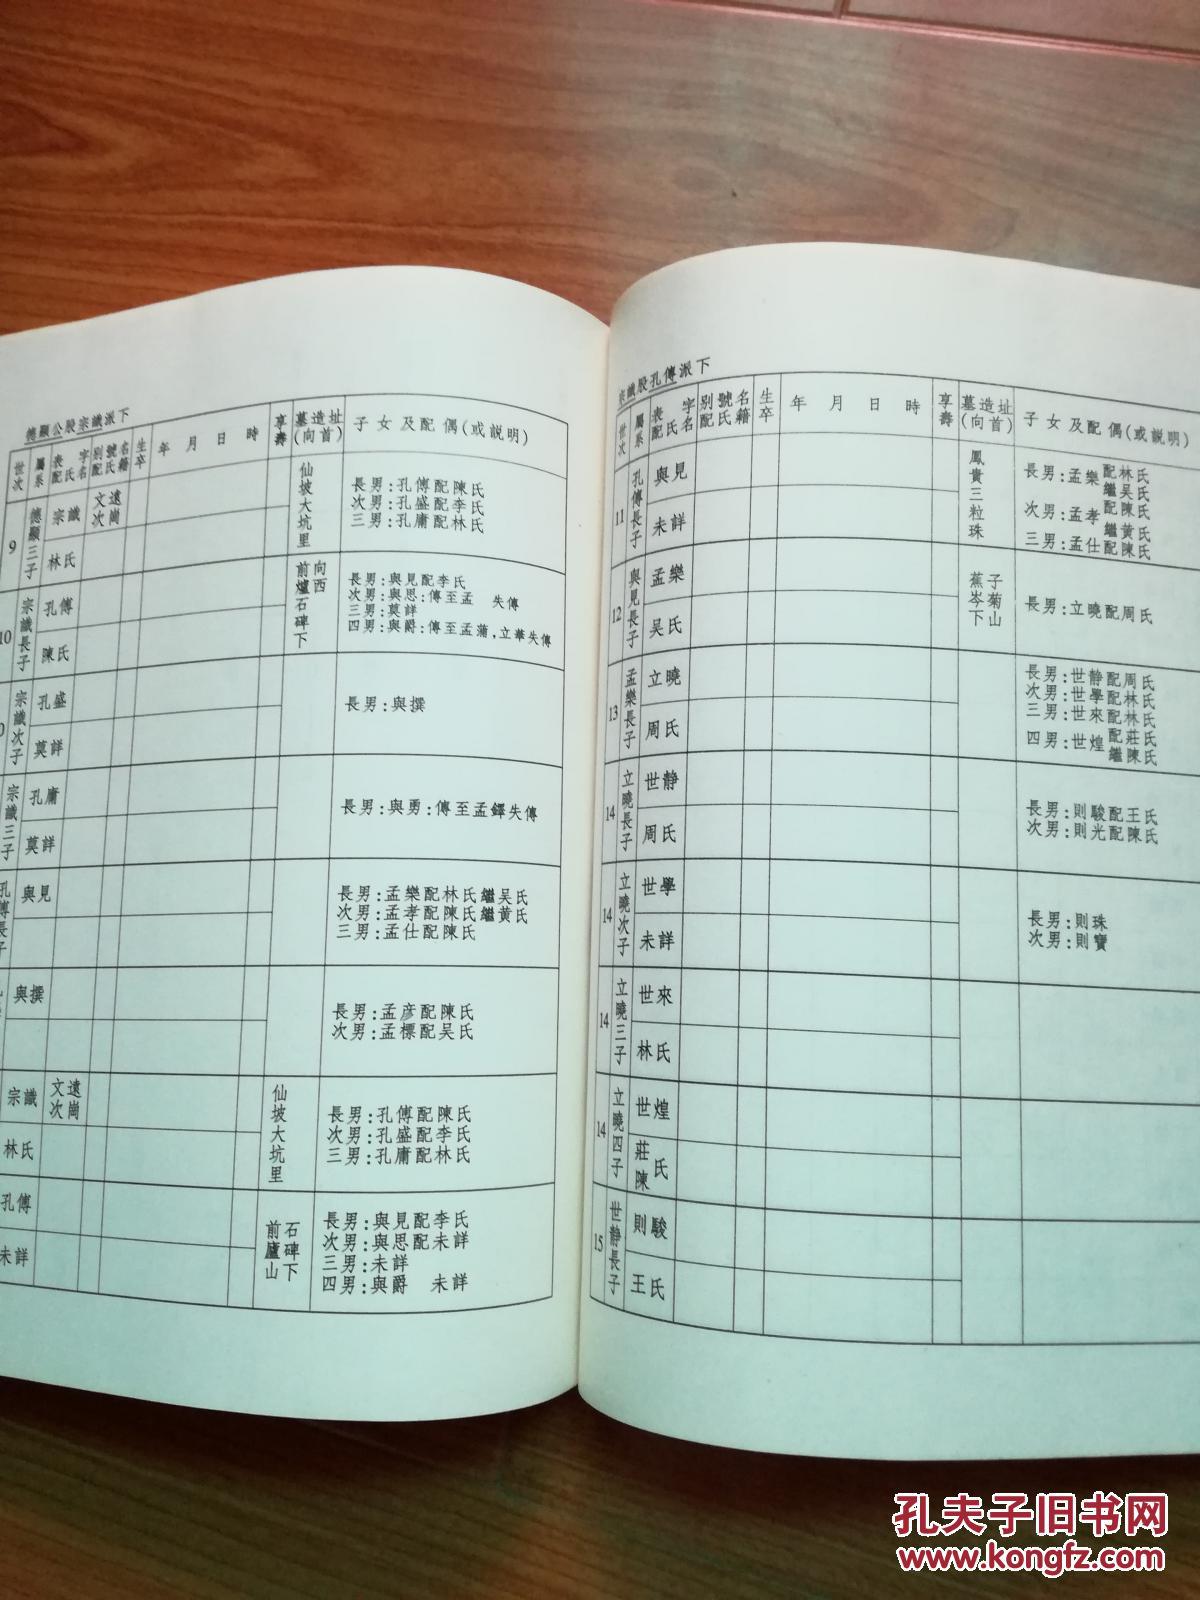 德顯公股宗識派下
世次 屬系 表字 配氏名 別號 配氏 名籍 生卒 年 月 日 時 享壽 墓造址(向首) 子女及配偶(或説明)
9 德顯三子 宗識 文遠 次崗 仙坡大坑里
林氏
長男:孔傅配陳氏
次男:孔盛配李氏
三男:孔庸配林氏
10 宗識長子 孔傅 前爐石碑下 向西
陳氏
長男:與見配李氏
次男:與思:傳至孟 失傳
三男:莫詳
四男:與爵:傳至孟蒲,立華失傳
宗識次子 孔盛
莫詳
長男:與撰
宗識三子 孔庸
莫詳
長男:與勇:傳至孟鐸失傳
孔傅長子 與見
長男:孟樂配林氏繼吴氏
次男:孟孝配陳氏繼黄氏
三男:孟仕配陳氏
與撰
長男:孟彦配陳氏
次男:孟標配吴氏
宗識 文遠 次崗 仙坡大坑里
林氏
長男:孔傅配陳氏
次男:孔盛配李氏
三男:孔庸配林氏
孔傅 前廬山 石碑下
未詳
長男:與見配李氏
次男:與思配未詳
三男:未詳
四男:與爵 未詳
宗識股孔傅派下
世次 屬系 表字 配氏名 別號 配氏 名籍 生卒 年 月 日 時 享壽 墓造址(向首) 子女及配偶(或説明)
11 孔傅長子 與見 鳳貴三粒珠
未詳
長男:孟樂配林氏繼吴氏
次男:孟孝配陳氏繼黄氏
三男:孟仕配陳氏
12 與見長子 孟樂 蕉岑下 子菊山
吴氏
長男:立曉配周氏
13 孟樂長子 立曉
周氏
長男:世静配周氏
次男:世學配林氏
三男:世來配林氏
四男:世煌配莊氏繼陳氏
14 立曉長子 世静
周氏
長男:則駿配王氏
次男:則光配陳氏
14 立曉次子 世學
未詳
長男:則珠
次男:則寶
14 立曉三子 世來
林氏
14 立曉四子 世煌
莊陳氏
15 世静長子 則駿
王氏
孔夫子旧书网
www.kongfz.com